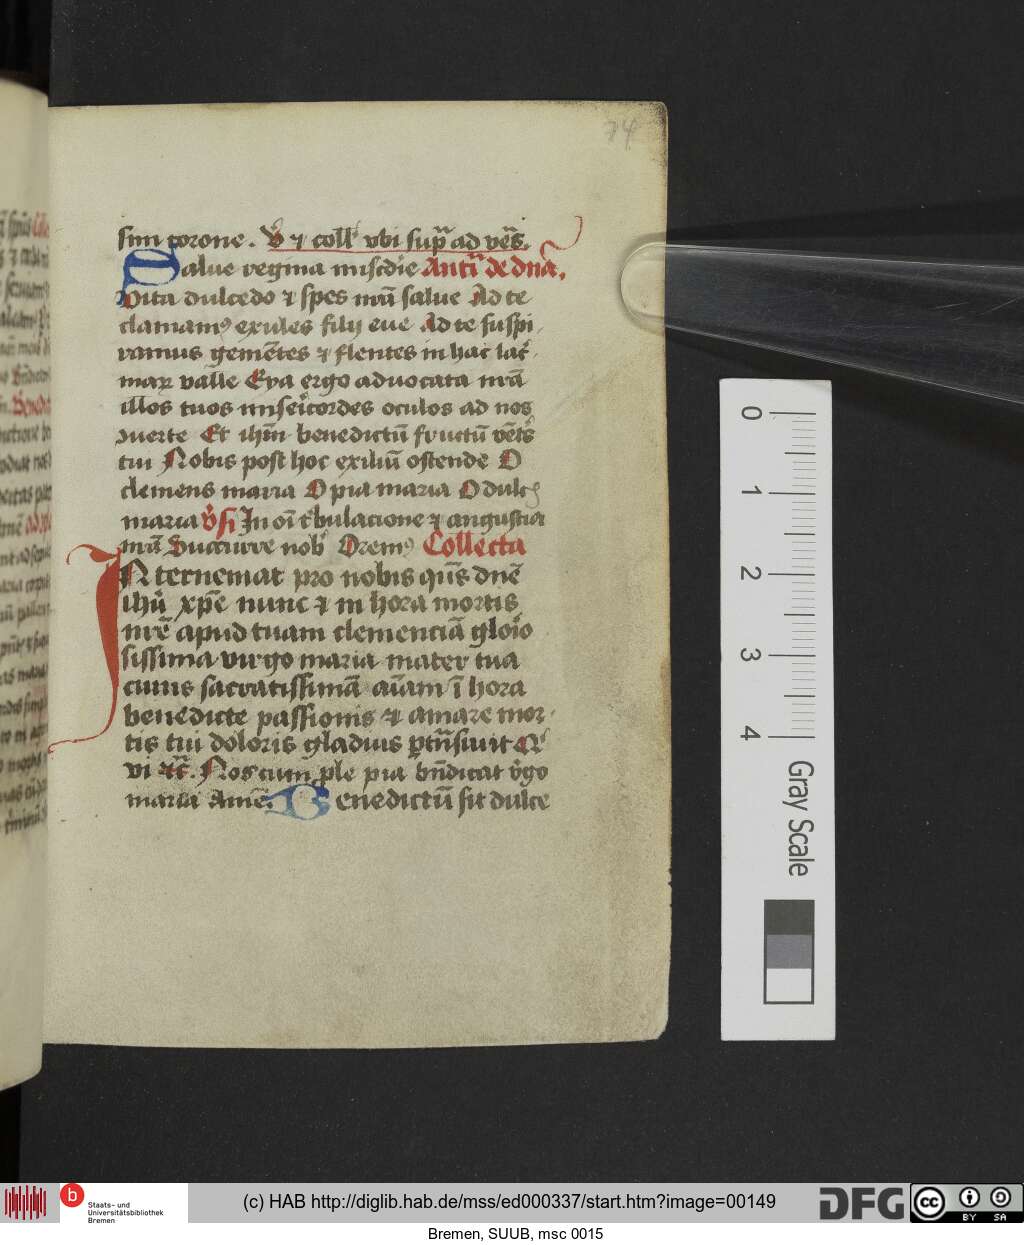 74
sim corone. V̊ ⁊ coll' vbi sup̄ ad ves̄.
Salue regina misc̄die Antī de dnā.
Vita dulcedo ⁊ spes nrā salue Ad te
clamamꝰ exules filij eue Ad te suspi-
ramus gemētes ⁊ flentes in hac lac̄-
maꝝ valle Eya ergo aduocata nrā
illos tuos misericordes oculos ad nos
ꝯuerte Et ihm̄ benedictū fructū vēts̄
tui Nobis post hoc exiliū ostende O
clemens maria O pia maria O dulcꝭ
maria v̊si In oī t̄bulacione ⁊ angustia
nrā Succurre nob' Oremꝰ Collecta
INterueniat pro nobis qūs dnē
ihū xp̄e nunc ⁊ in hora mortis
nrē apud tuam clemenciā gloīo
sissima virgo maria mater tua
cuius sacratissimā aīam ī hora
benedicte passionis ⁊ amare mor-
tis tui doloris gladius ꝑtn̄siuit Q'
vi ⁊c̄. Nos cum ple pia bn̄dicat v̊go
maria Amē. Benedictū sit dulce
0
1
2
3
4
Gray Scale
b
Staats- und
Universitätsbibliothek
Bremen
(c) HAB http://diglib.hab.de/mss/ed000337/start.htm?image=00149
DFG
cc
BY SA
Bremen, SUUB, msc 0015